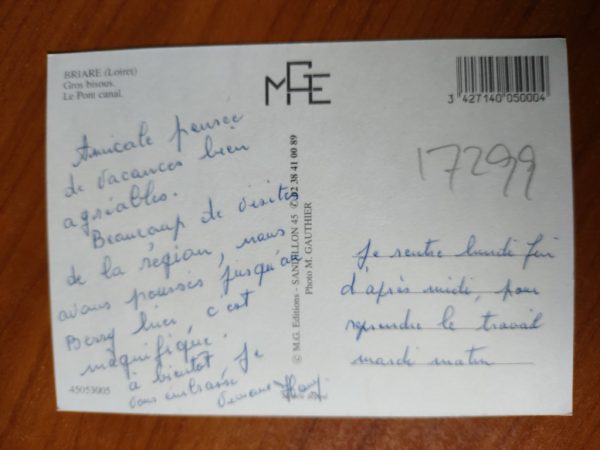 BRIARE (Loiret)
Gros bisous.
Le Pont canal.
MGE
3 427140 050004
17299
Amicale pensée
de vacances bien
agréables.
Beaucoup de visites
de la région, nous
avons poussés jusqu'au
Berry hier, c'est
magnifique.
à bientôt je
vous embrasse
45053005
© M.G. Editions - SANDILLON 45 ✆ 02 38 41 00 89
Photo M. GAUTHIER
Je rentre lundi fin
d'après midi, pour
reprendre le travail
mardi matin